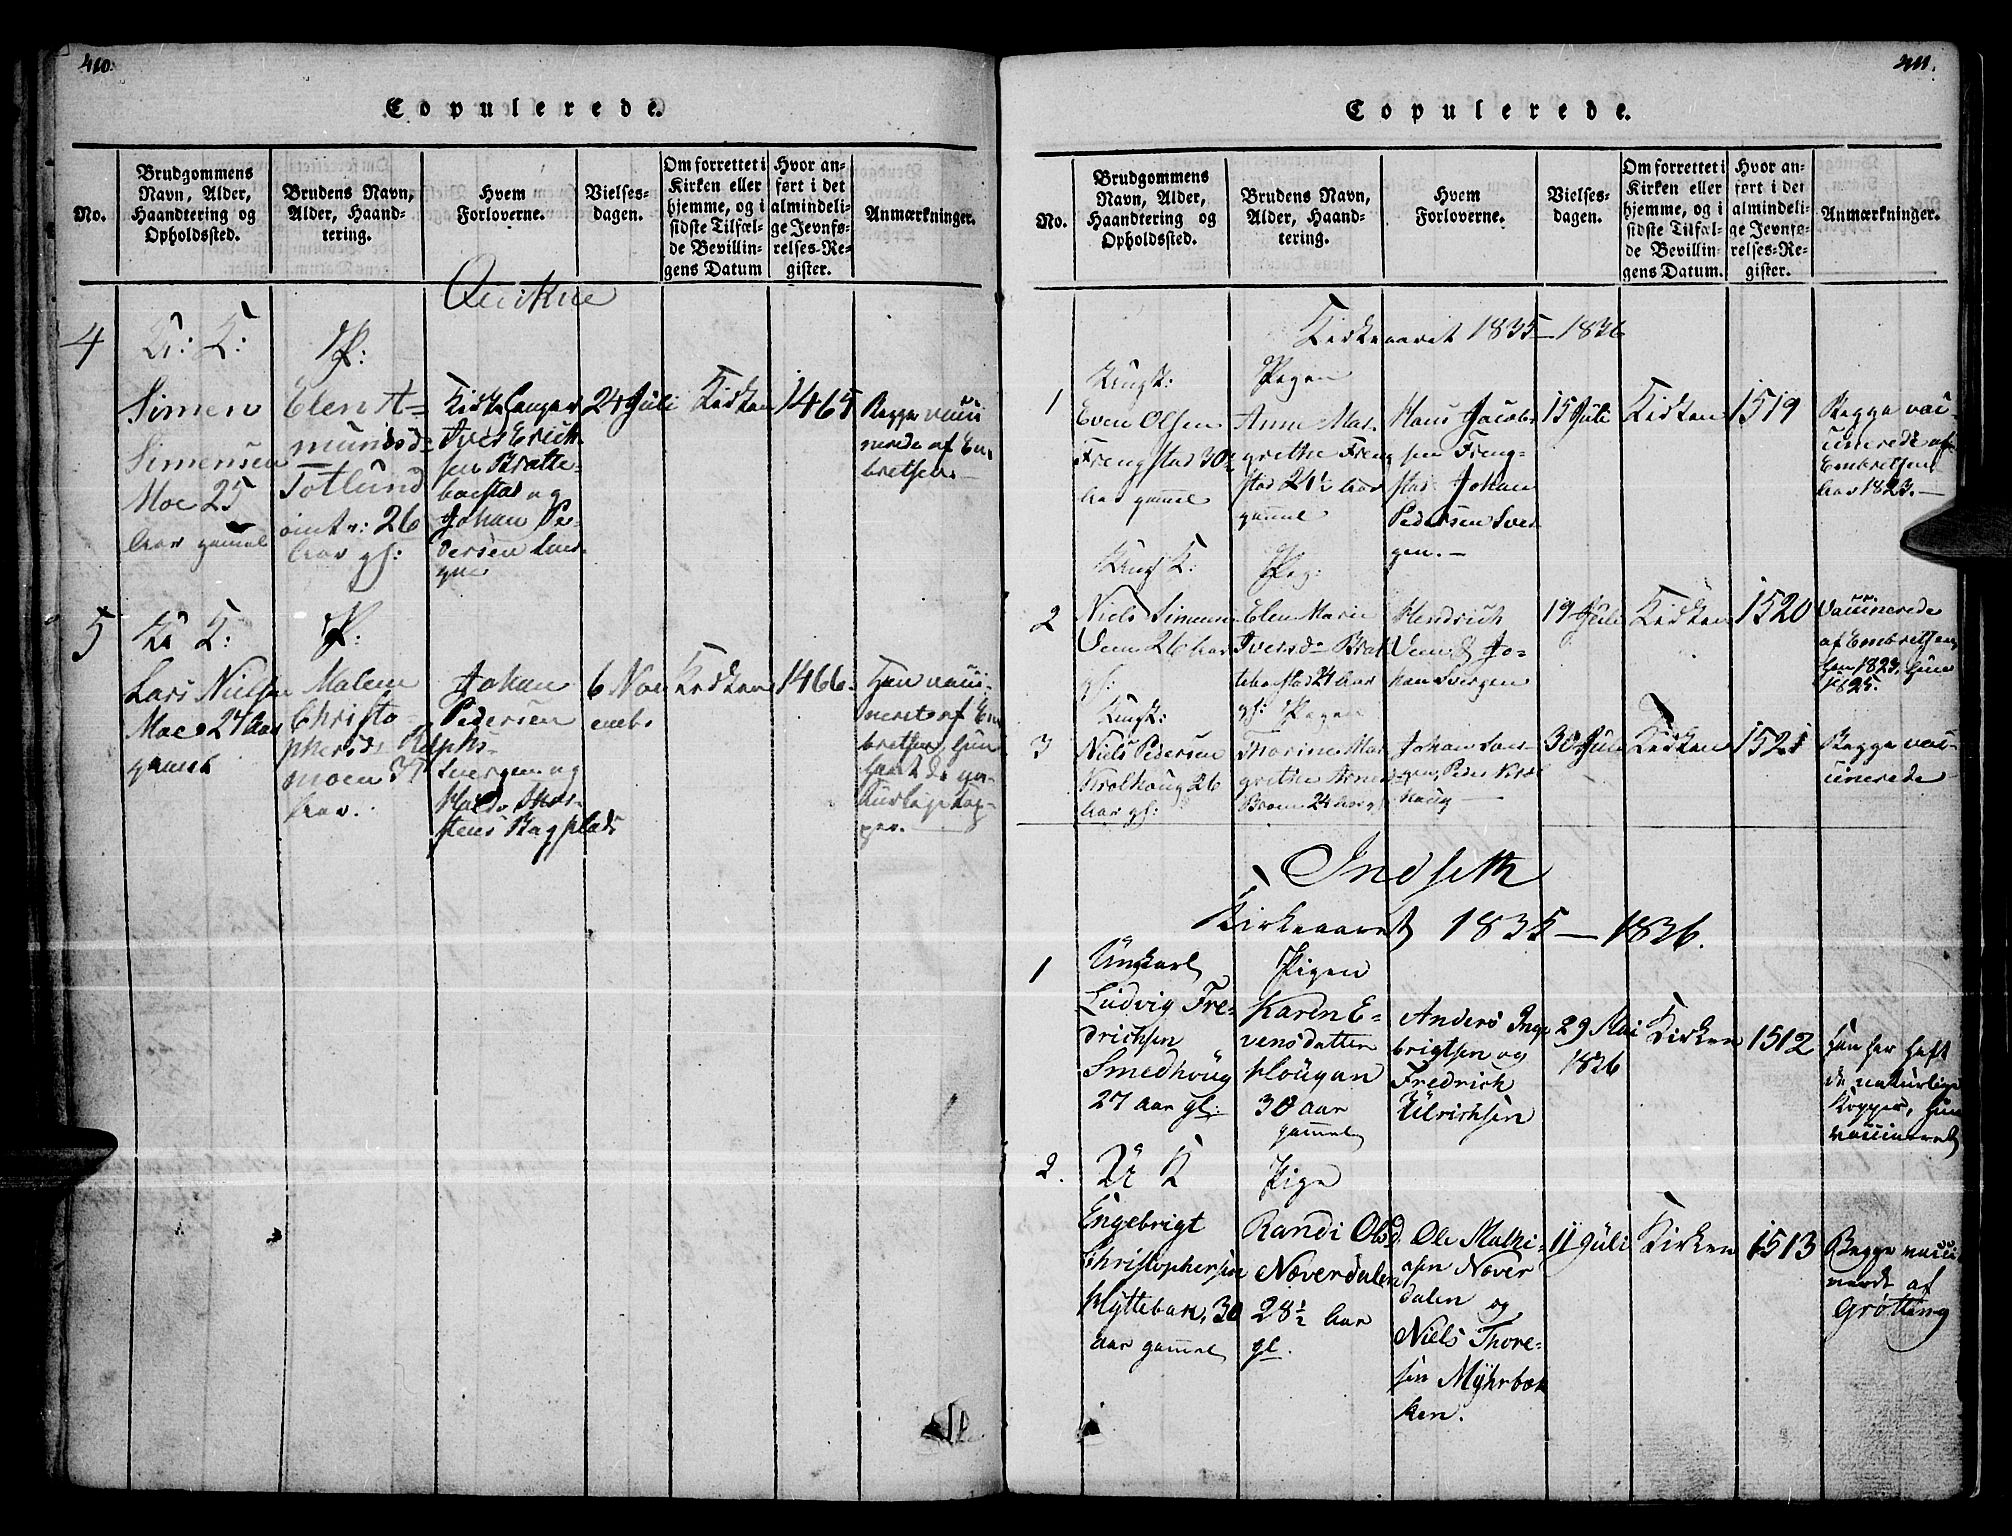 410.
Copulerede.
No.
Brudgommens
Navn, Alder,
Haandtering og
Opholdssted.
Brudens Navn,
Alder, Haand-
tering.
Hvem
Forloverne.
Vielses-
dagen.
Om forrettet i
Kirken eller
hjemme, og i
sidste Tilfæl-
de Bevillin-
gens Datum
Hvor an-
ført i det
almindeli-
ge Jevnfø-
relses-Re-
gister.
Anmærkninger.
Qvikne
4
U: K:
Simen
Simensen
Moe 25
Aar gamel
P:
Elen A-
mundsd-
Totlund
26
Aar gl:
Kirkesanger
Iver Erich-
sen Bratte-
boestad og
Johan Pe-
dersen
24 Juli
Kirken
1465
Begge vacci
nerede af Em
bretsen
5
U K:
Lars Nielsen
Moe 27 Aar
gamel
P:
Malene
Christo-
phersd:
moen 37
Aar.
Johan
Pedersen
Svergen og
6 Nov
emb.
Kirken
1466.
Han vacci-
neret af Em
bretsen, hun
havt de na-
turlige Kop-
per.
411.
Copulerede.
No.
Brudgommens
Navn, Alder,
Haandtering og
Opholdssted.
Brudens Navn,
Alder, Haand-
tering.
Hvem
Forloverne.
Vielses-
dagen.
Om forrettet i
Kirken eller
hjemme, og i
sidste Tilfæl-
de Bevillin-
gens Datum.
Hvor an-
ført i det
almindeli-
ge Jevnfø-
relses-Re-
gister.
Anmærkninger.
Kirkeaaret 1835-1836
1
Ungk:
Even Olsen
Frengstad 30
Aar gamel
Pigen
Anne Mar-
grethe Freng
stad 21½ Aar
gamel
Hans Jacob-
sen Freng-
stad Johan
Pedersen Sver
gen.-
15 Juli
Kirken
1519
Begge vac-
cinerede af
Embretsen
Aar 1823.-
2
Ung K:
Niels Simens
Venn 26 Aar
gl:
Pig:
Elen Marie
Iversd- Brat
teboestad 24 Aar
gl:
Hendrich
Venn & Jo-
han Svergen
19 Juli
Kirken
1520
Vaccinerede
af Embretsen
han 1823, hun
1825.
3
Ungk:
Niels Pedersen
26
Aar gl:
Pigen
Marine Mar
grethe
24 Aar gl
Johan Sver-
gen, Peder
haug
30
Kirken
1521
Begge vac-
cinerede
Indseth
Kirkeaaret 1835-1836.
1
Ungkarl
Ludvig Fre-
drichsen
Smedhoug
27 Aar gl.
Pigen
Karen E-
vensdatter
Hougan
30 aar
gammel
Anders Inge
brigtsen og
Fredrich
Ulrichsen
29 Mai
1836
Kirken
1512
han har haft
de naturlige
Kopper, hun
vaccineret
2.
U K
Engebrigt
Christophersen
Hyttebak, 30
Aar gammel
Pige
Randi Olsd.
Næverdalen
28½ Aar
gl.
Ole Mathi-
asen Næver
dalen og
Niels Thore-
sen Myhrbæk
ken.
11 Juli
Kirken
1513
Begge vacci
nerede af
Grøtting